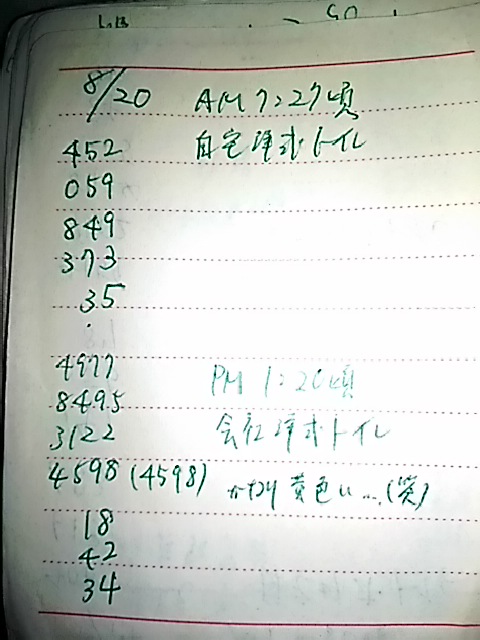 8/20 AM 7:27頃
452 自宅洋式トイレ
059
849
373
35
.
4977 PM 1:20頃
8495
3122 会社洋式トイレ
4598 (4598) かなり黄色い…(笑)
18
42
34